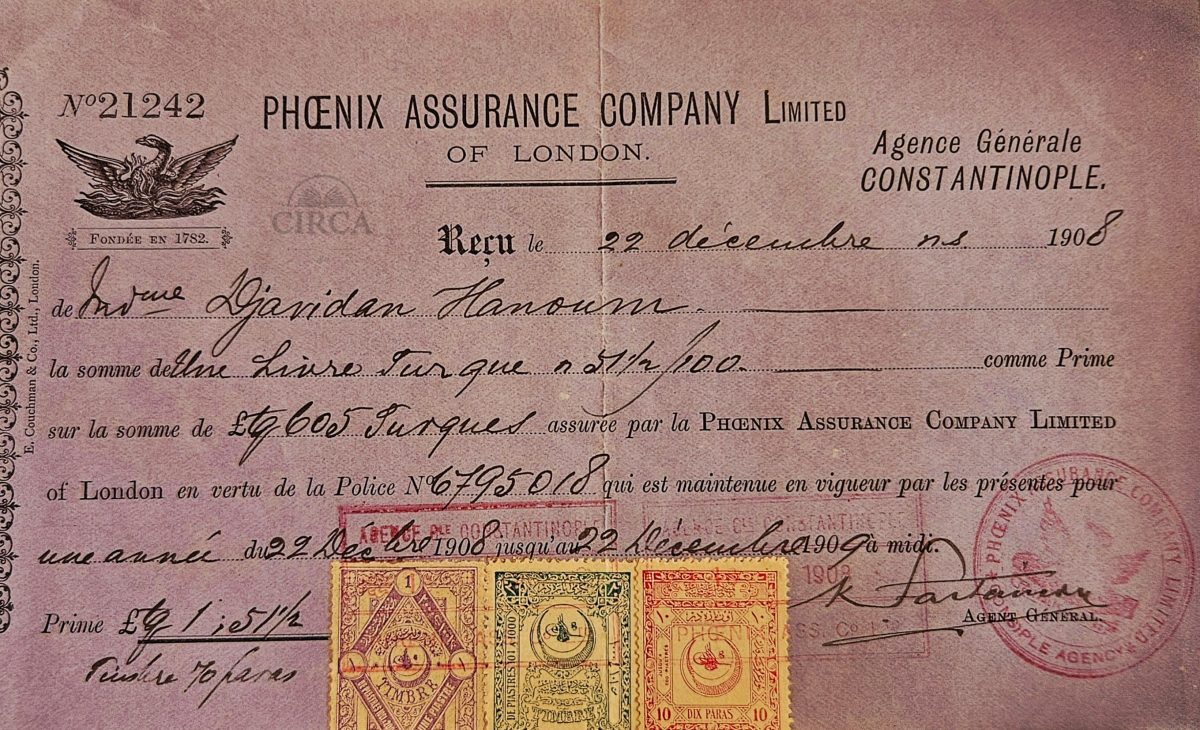 Nº 21242
PHŒNIX ASSURANCE COMPANY LIMITED
OF LONDON.
Agence Générale
CONSTANTINOPLE.
CIRCA
FONDÉE EN 1782.
Reçu le 22 décembre ns 1908
de Mdme Djavidan Hanoum.
la somme de Une Livre Turque n 51 1/2/100. comme Prime
sur la somme de £tq 605 Turques assurée par la PHŒNIX ASSURANCE COMPANY LIMITED
of London en vertu de la Police Nº 6795018 qui est maintenue en vigueur par les présentes pour
AGENCE Gle CONSTANTINOPLE
AGENCE Gle CONSTANTINOPLE
une année du 22 Décbre 1908 jusqu'au 22 Décembre 1909 à midi.
1908
AGENT GÉNÉRAL.
Prime £tq 1;51 1/2
Timbre 70 paras
PHŒNIX ASSURANCE COMPANY LIMITED
CONSTANTINOPLE AGENCY
PHŒNIX ASS. Co. LD
1
TIMBRE
DE PIASTRES 101 A 1000
TIMBRE
10 DIX PARAS 10
E. Couchman & Co., Ltd., London.